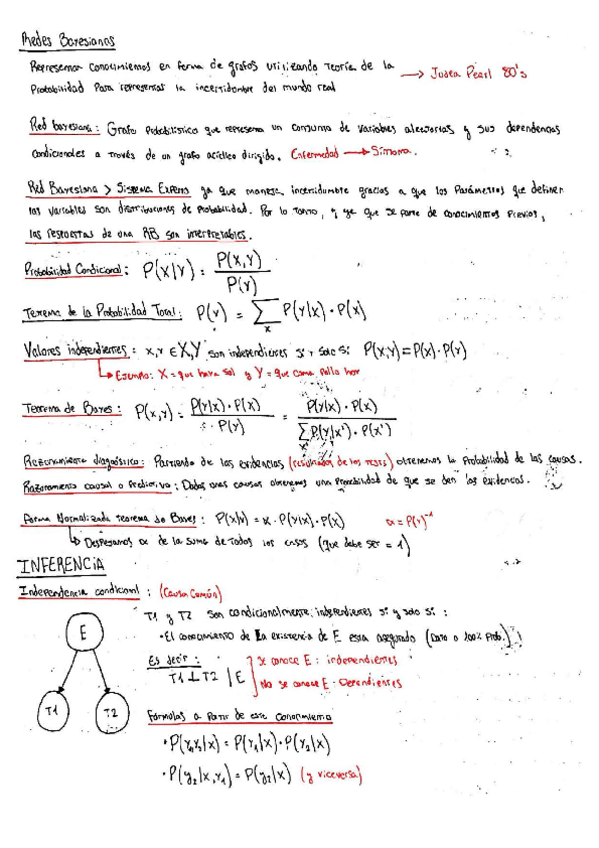 Redes Bayesianas
Representan conocimientos en forma de grafos utilizando teoría de la → Judea Pearl 80's
Probabilidad Para representar la incertidumbre del mundo real
Red bayesiana: Grafo Probabilístico que representa un conjunto de variables aleatorias y sus dependencias
condicionales a través de un grafo acíclico dirigido. Enfermedad → Síntoma.
Red Bayesiana > Sistema Experto ya que maneja incertidumbre gracias a que los Parámetros que definen
las variables son distribuciones de Probabilidad. Por lo tanto, y ya que se parte de conocimientos Previos,
las respuestas de una RB son interpretables.
Probabilidad Condicional: P(X|Y) = P(X,Y) / P(Y)
Teorema de la Probabilidad Total: P(y) = Σx P(y|x) · P(x)
Valores independientes: x,y ∈ X,Y son independientes sí y solo sí P(x,y) = P(x) · P(y)
↳ Ejemplo: X = que haya sol y Y = que coma pollo hoy
Teorema de Bayes: P(x,y) = P(y|x) · P(x) / P(y) = P(y|x) · P(x) / Σ P(y|x') · P(x')
Razonamiento diagnóstico: Partiendo de las evidencias (resultados de los tests) obtenemos la Probabilidad de las causas.
Razonamiento causal o Predictivo: Dadas unas causas obtenemos una Probabilidad de que se den las evidencias.
Forma Normalizada teorema de Bayes: P(x|y) = α · P(y|x) · P(x) α = P(y)⁻¹
↳ Despejamos α de la suma de todos los casos (que debe ser = 1)
INFERENCIA
Independencia condicional: (Causa Común)
T1 y T2 son condicionalmente independientes sí y solo sí:
· El conocimiento de la existencia de E esta asegurado (Dato o 100% Prob.)
E
Es decir:
T1 ⊥ T2 | E
Se conoce E: independientes
No se conoce E: Dependientes
T1
T2
Fórmulas a Partir de este conocimiento
· P(y₁,y₂|x) = P(y₁|x) · P(y₂|x)
· P(y₂|x,y₁) = P(y₂|x) (y viceversa)